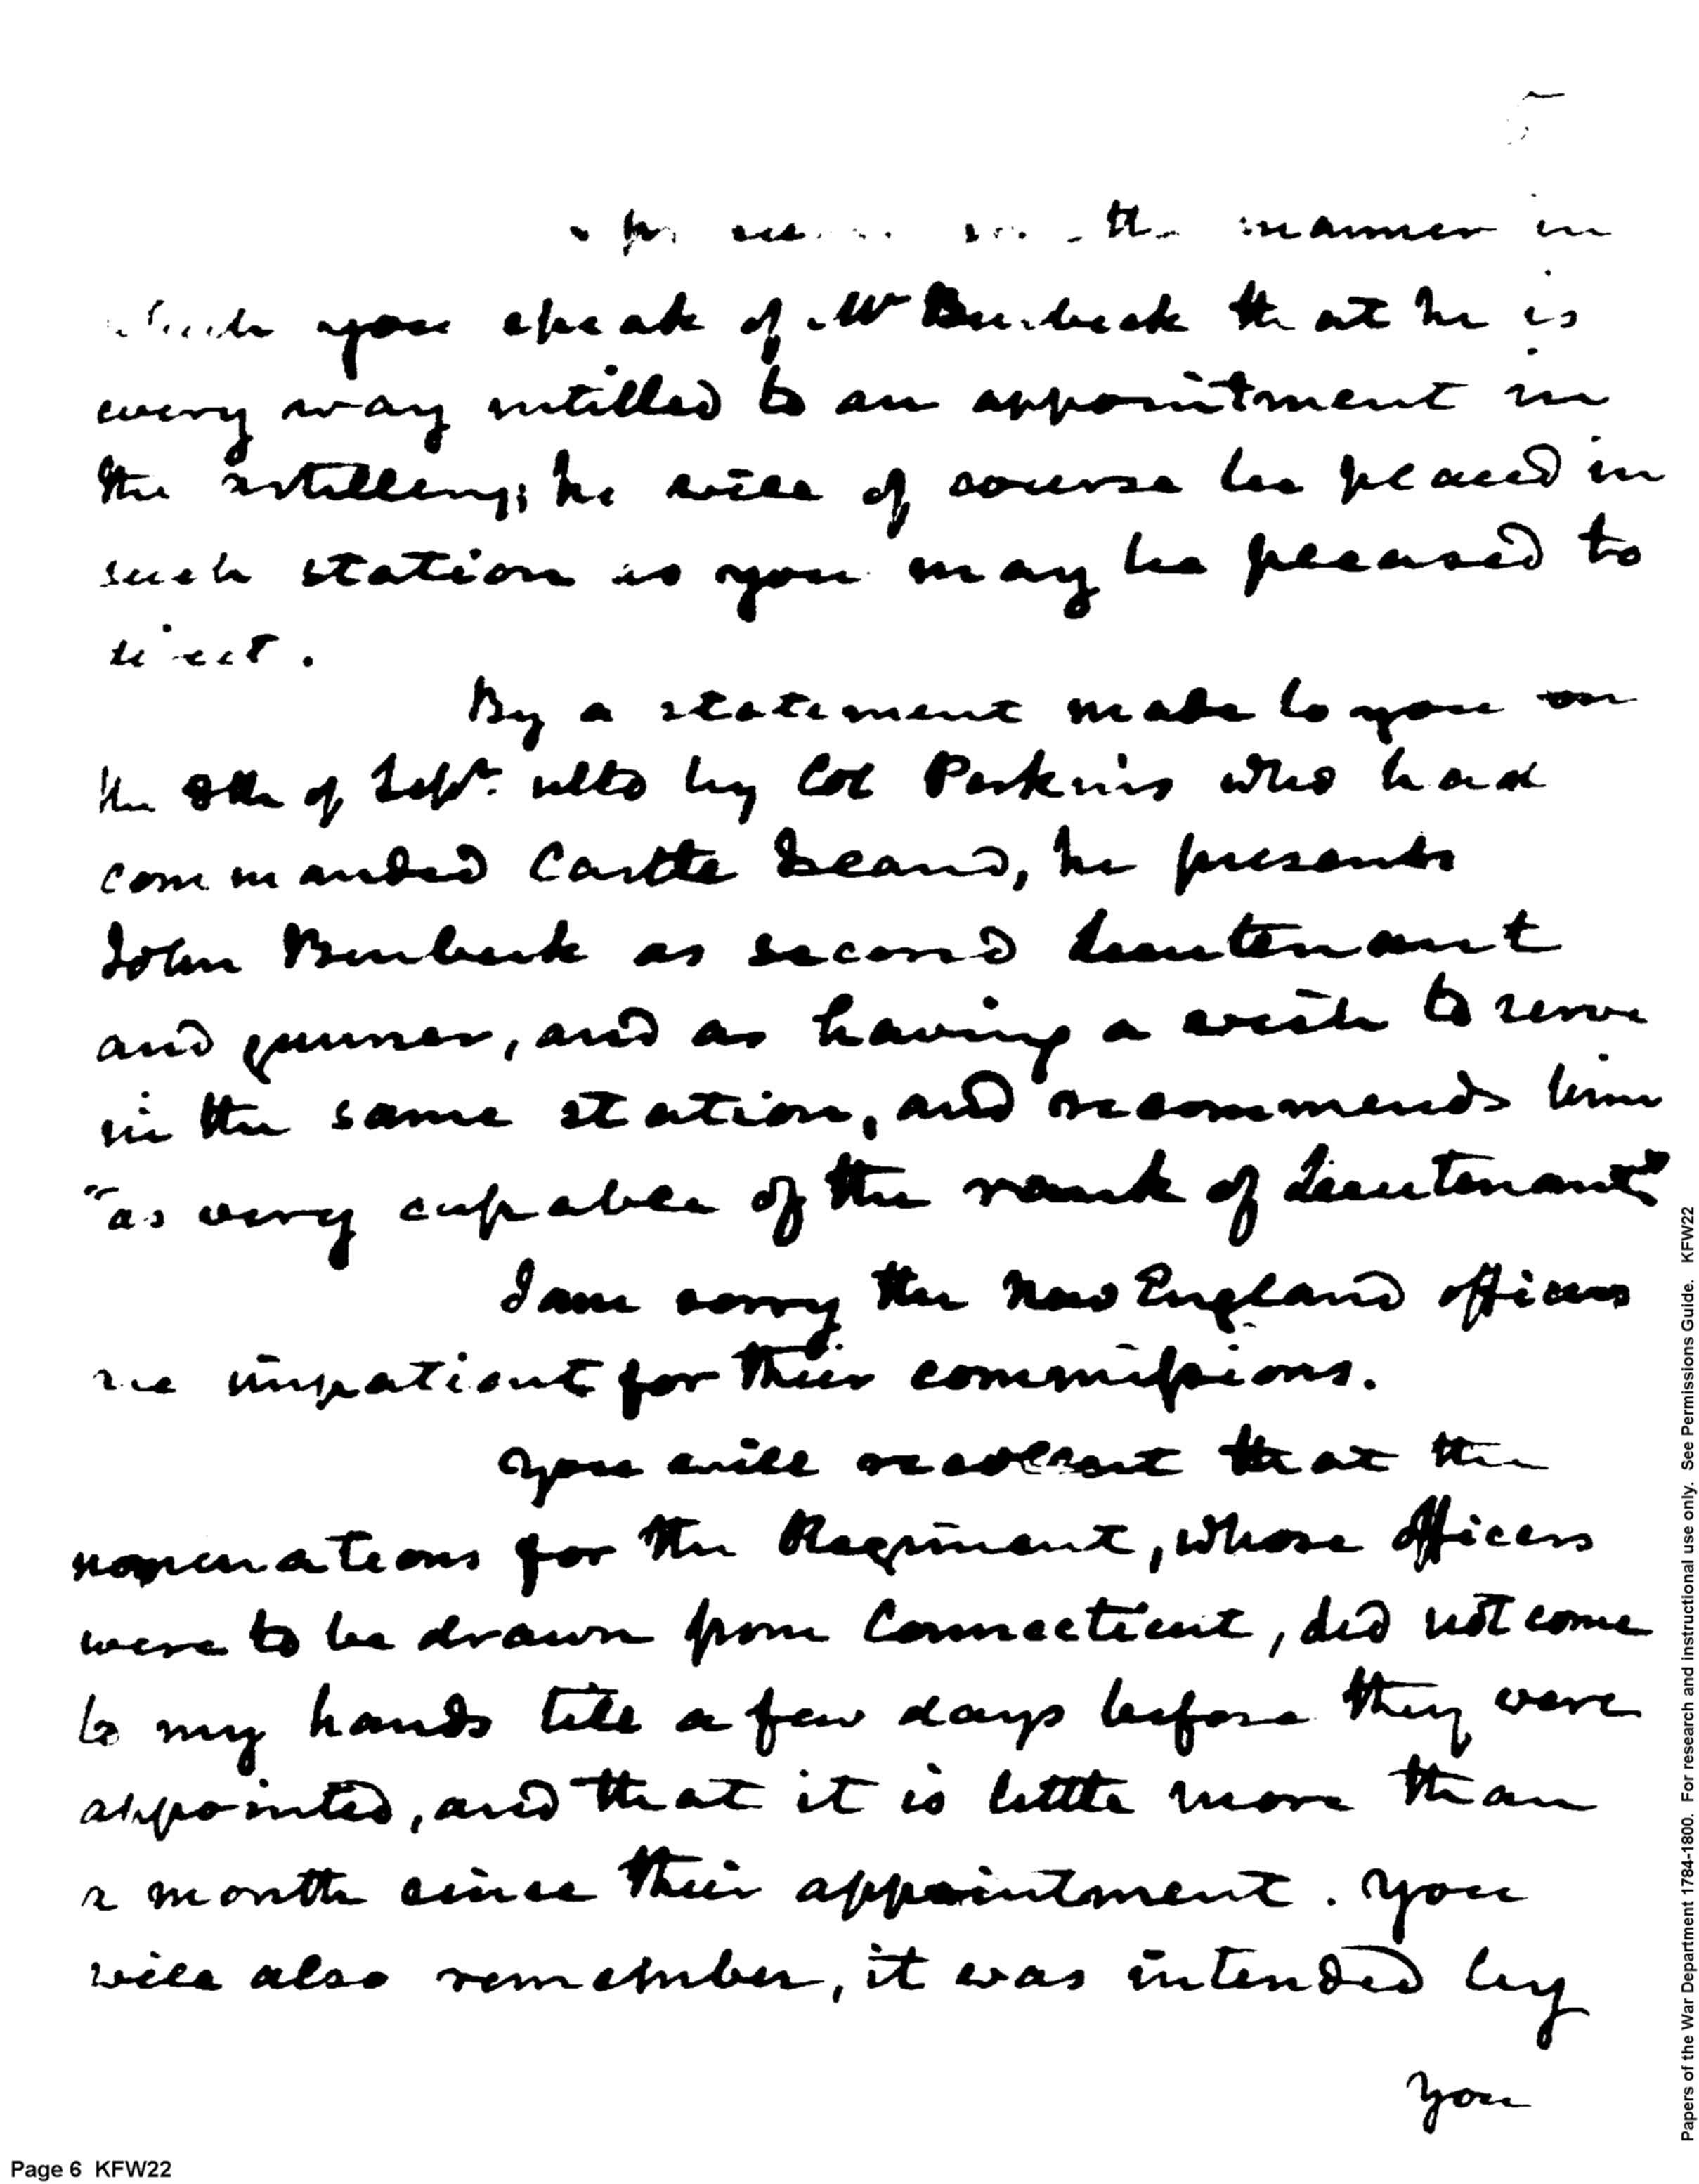 5
the manner in
which you speak of Mr Burbeck that he is
every way intitled to an appointment in
the artillery; he will of course be placed in
such station as you may be pleased to
direct.
By a statement made to you on
the 8th of Sept. ulto by Col Perkins who had
commanded Castle Island, he presents
John Burbeck as second lieutenant
and gunner, and as having a wish to serve
in the same station, and recommends him
"as very capable of the rank of Lieutenant"
I am sorry the New England officers
are impatient for their commissions.
You will recollect that the
nominations for the Regiment, whose officers
were to be drawn from Connecticut, did not come
to my hands till a few days before they were
appointed, and that it is little more than
a month since their appointment. You
will also remember, it was intended by
you
Page 6 KFW22
Papers of the War Department 1784-1800. For research and instructional use only. See Permissions Guide. KFW22